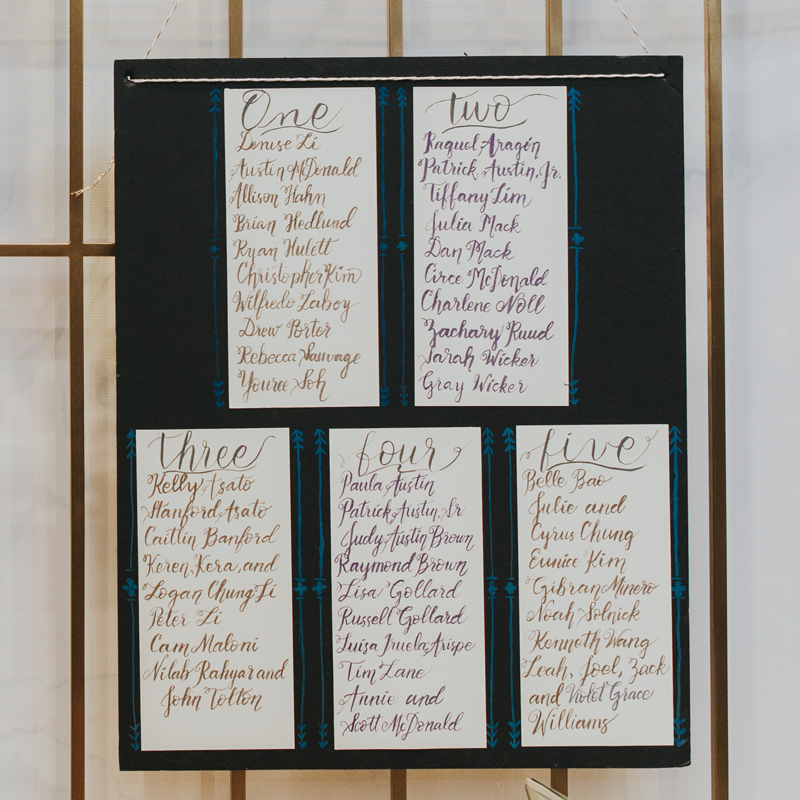 One
Denise Li
Austin McDonald
Allison Hahn
Brian Hedlund
Ryan Hulett
Christopher Kim
Wilfredo Laboy
Drew Porter
Rebecca Sauvage
Youree Soh
two
Raquel Aragón
Patrick Austin, Jr.
Tiffany Lim
Julia Mack
Dan Mack
Circe McDonald
Charlene Noll
Zachary Ruud
Sarah Wicker
Gray Wicker
three
Kelly Asato
Stanford Asato
Caitlin Banford
Keren, Kera, and
Logan Chung Li
Peter Li
Cam Maloni
Nilab Rahyar and
John Tolton
four
Paula Austin
Patrick Austin, Sr
Judy Austin Brown
Raymond Brown
Lisa Gollard
Russell Gollard
Luisa Iruela-Arispe
Tim Lane
Annie and
Scott McDonald
five
Belle Bao
Julie and
Cyrus Chung
Eunice Kim
Gibran Minero
Noah Solnick
Kenneth Wang
Leah, Joel, Zack
and Violet Grace
Williams